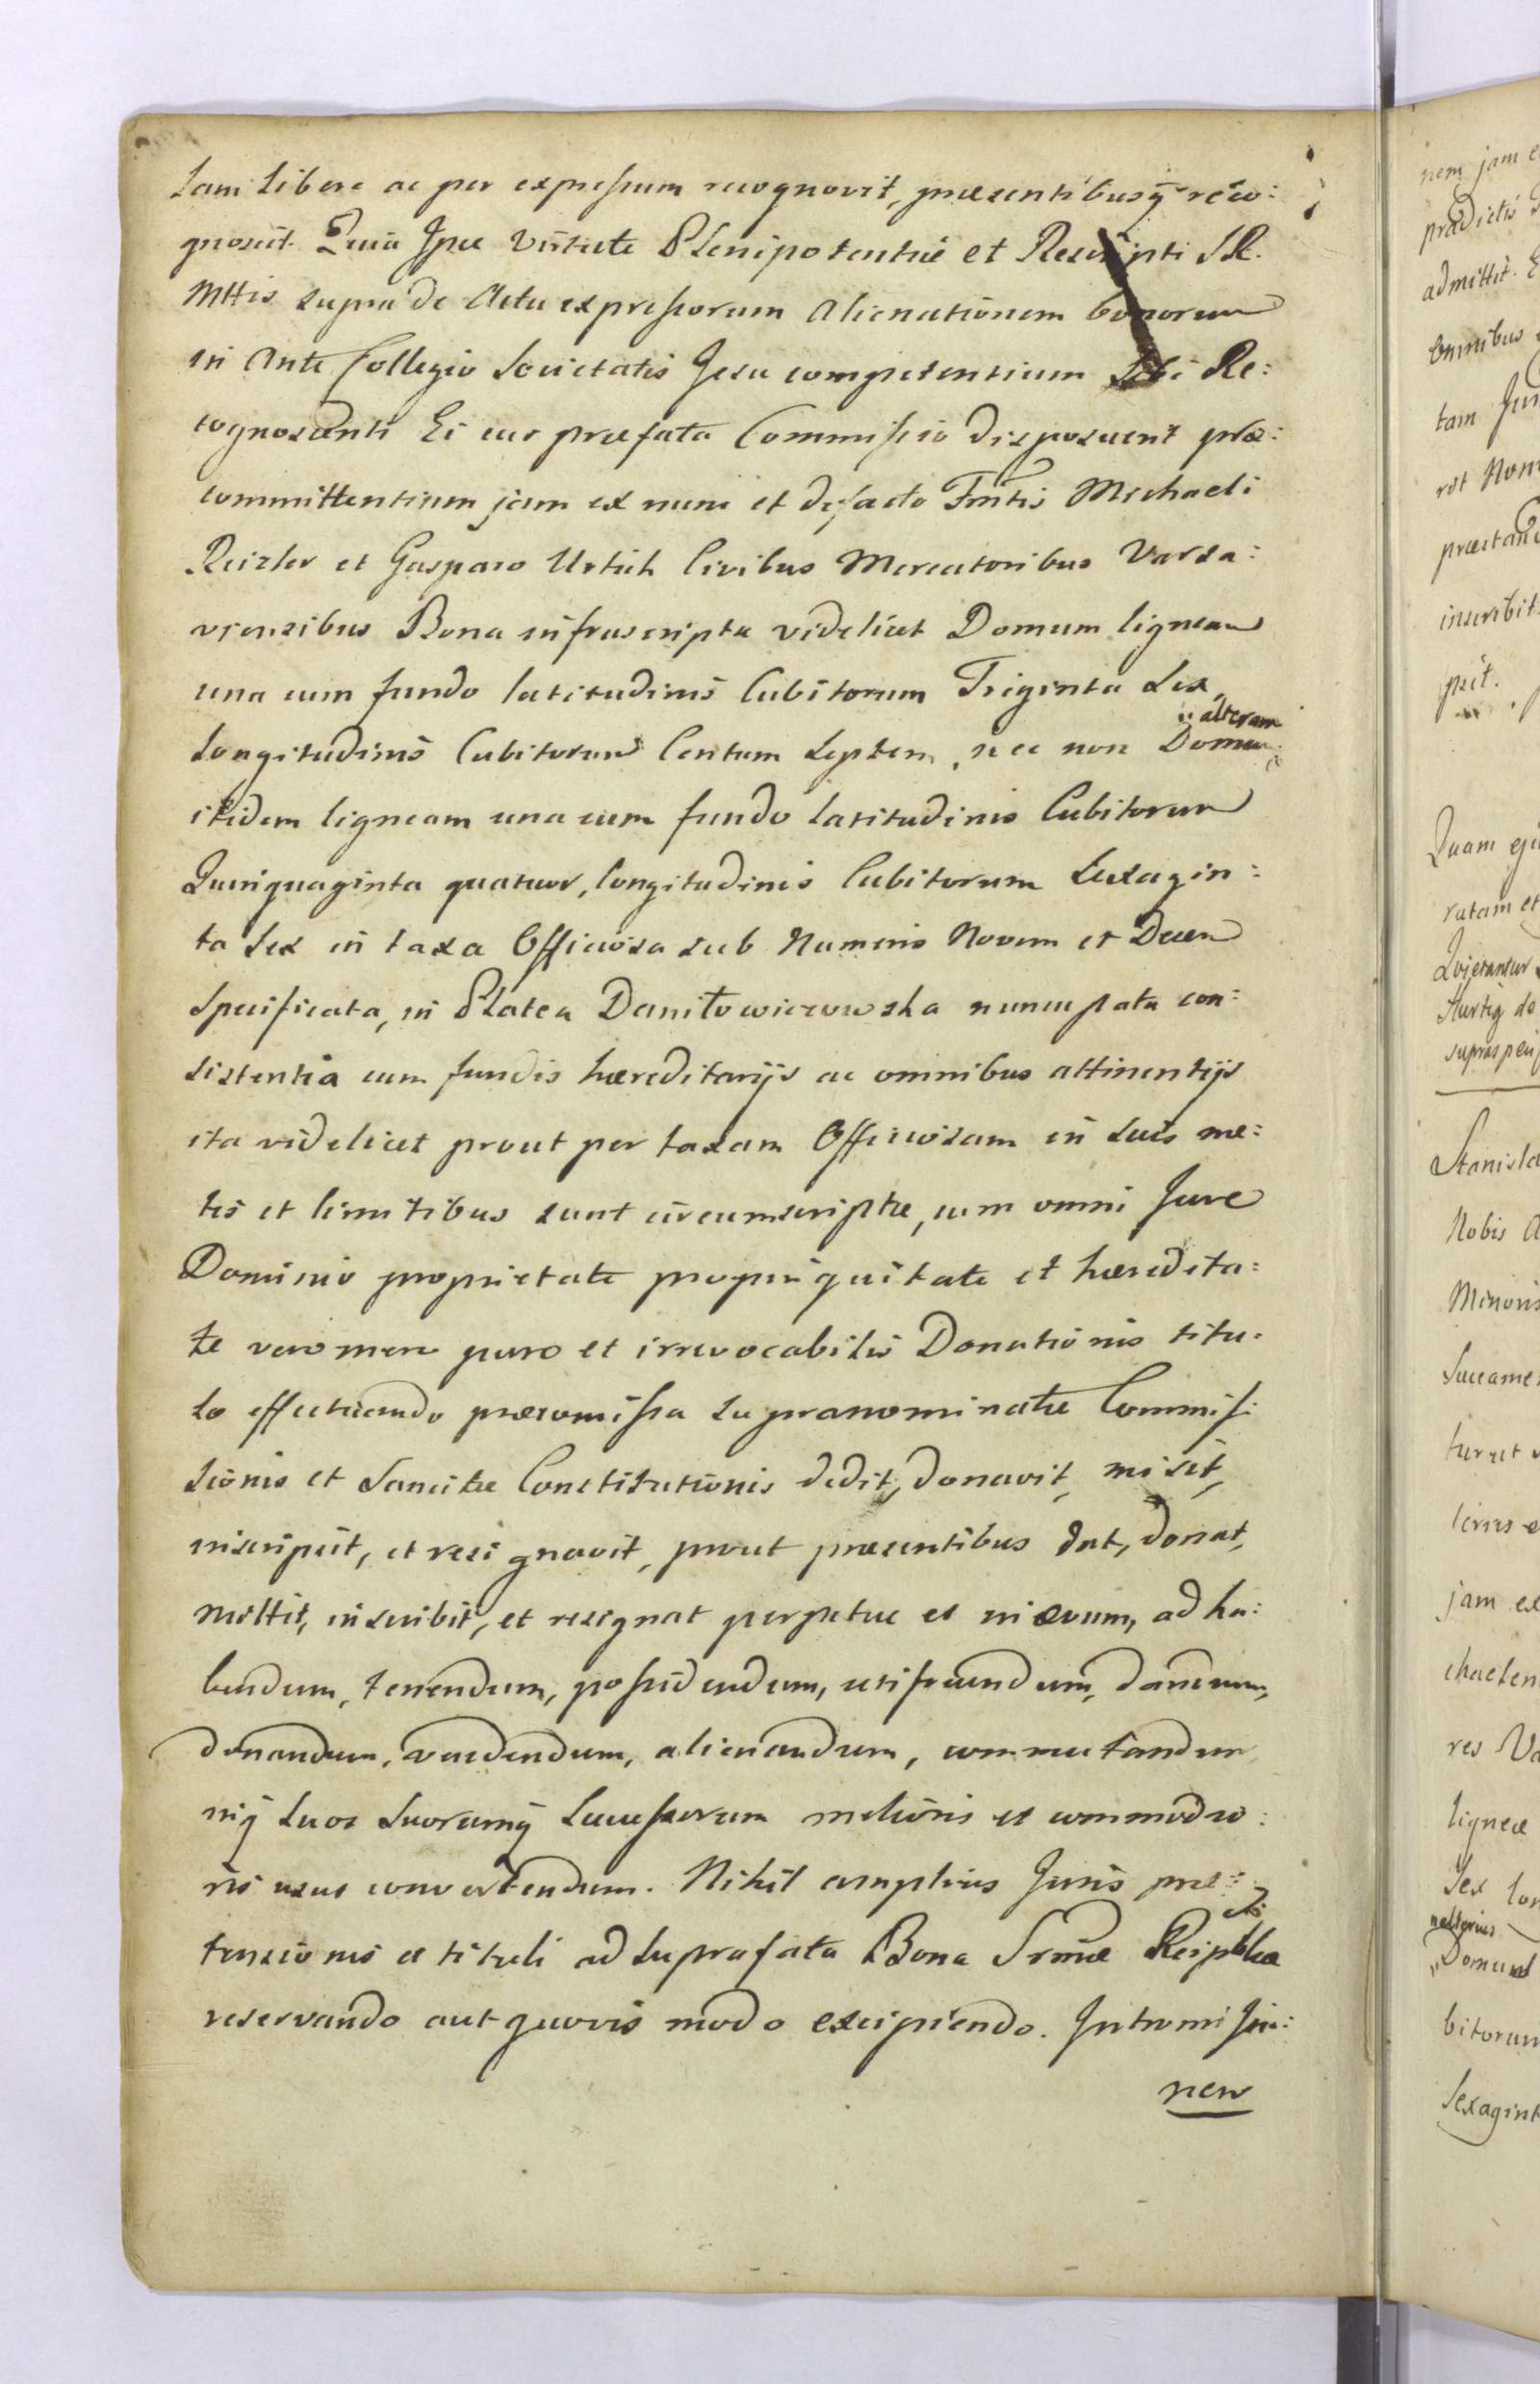 sam libere ac per expressum recognovit, praesentibusq reco:
gnoscit. Quia Ipse Virtute Plenipotentiae et Rescripti S.R.
Mttis supra de Actu expressorum Alienationem bonorum
in Ante Collegio Societatis Jesu competentium Sibi Re:
cognoscenti Ei eas praefata Commissio disposuerit prae:
committentium jam ex nunc et defacto Fmtis Michaeli
Reizler et Gasparo Urtich Civibus Mercatoribus Varsa:
viensibus Bona infrascripta videlicet Domum ligneam
una cum fundo latitudinis Cubitorum Triginta Sex,
Longitudinis Cubitorum Centum Septem, nec non alteram Domum
itidem ligneam una cum fundo latitudinis Cubitorum
Quinquaginta quatuor, longitudinis Cubitorum Sexagin:
ta Sex in taxa Officiosa sub Numeris Novem et Decem
Specificata, in Platea Daniłowiczowska nuncupata con:
sistentia cum fundis haereditarijs ac omnibus attinentijs
ita videlicet prout per taxam Officiosam in suis me:
tis et limitibus sunt circumscriptae, cum omni Jure
Dominio proprietate propinquitate et haeredita:
te vero mero puro et irrevocabilis Donationis titu:
lo effectuando praeromissa supranominatae Commis:
sionis et Sancitae Constitutionis dedit, donavit, misit,
inscripsit, et resignavit, prout praesentibus dat, donat,
mittit, inscribit, et resignat perpetue et in aevum, ad ha:
bendum, tenendum, possidendum, utifruendum, dandum,
donandum, vendendum, alienandum, commutandum
inq suos suorumq Successorum melioris et commodio:
ris usus convertendum. Nihil amplius Juris prae:
tensionis et tituli ad suprafata Bona Srmae Reipblcae
reservando aut quovis modo excipiendo. Intromissio:
nem
nem jam e
praedictis
admittit. E
Omnibus
tam Jur
rit Nom
praestand
inscribit
psit.
Quam eju
ratam et
Quietantur
Hurtig de
suprascrip
Stanisla
Nobis A
Minoris
Succame
tur et
jam ex
res Va
ligneae
Sex lon
nalterius
Domus
bitorum
Sexagint